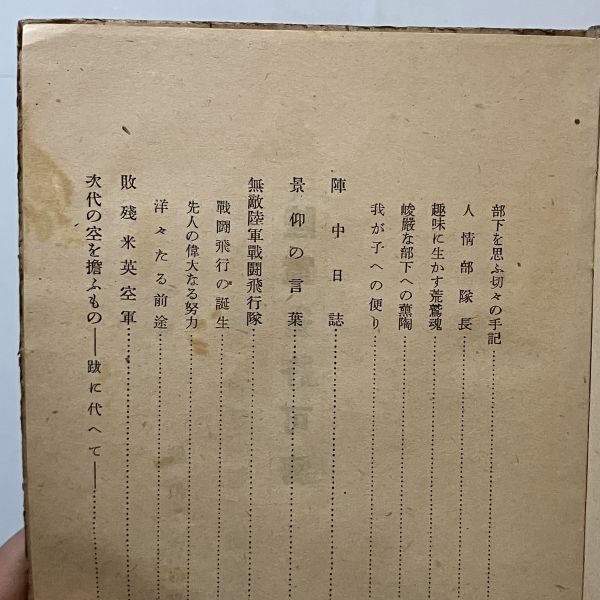 部下を思ふ切々の手記
人情部隊長
趣味に生かす荒鷲魂
峻厳な部下への薫陶
我が子への便り
陣中日誌
景仰の言葉
無敵陸軍戰闘飛行隊
戰闘飛行の誕生
先人の偉大なる努力
洋々たる前途
敗殘米英空軍
次代の空を擔ふもの——跋に代へて——